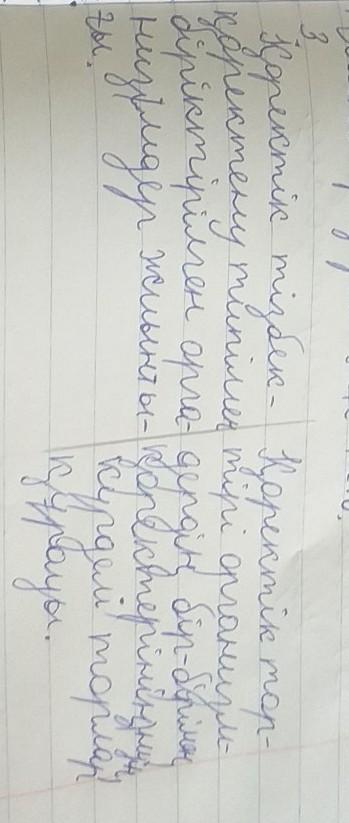 3
Қоректік тізбек-
қоректену типімен
біріктірілген орга-
низмдер жиынты-
ғы.
Қоректік тор-
тірі организм-
дердің бір-бірімен
қоректерінің
күрделі торлар
құрауы.